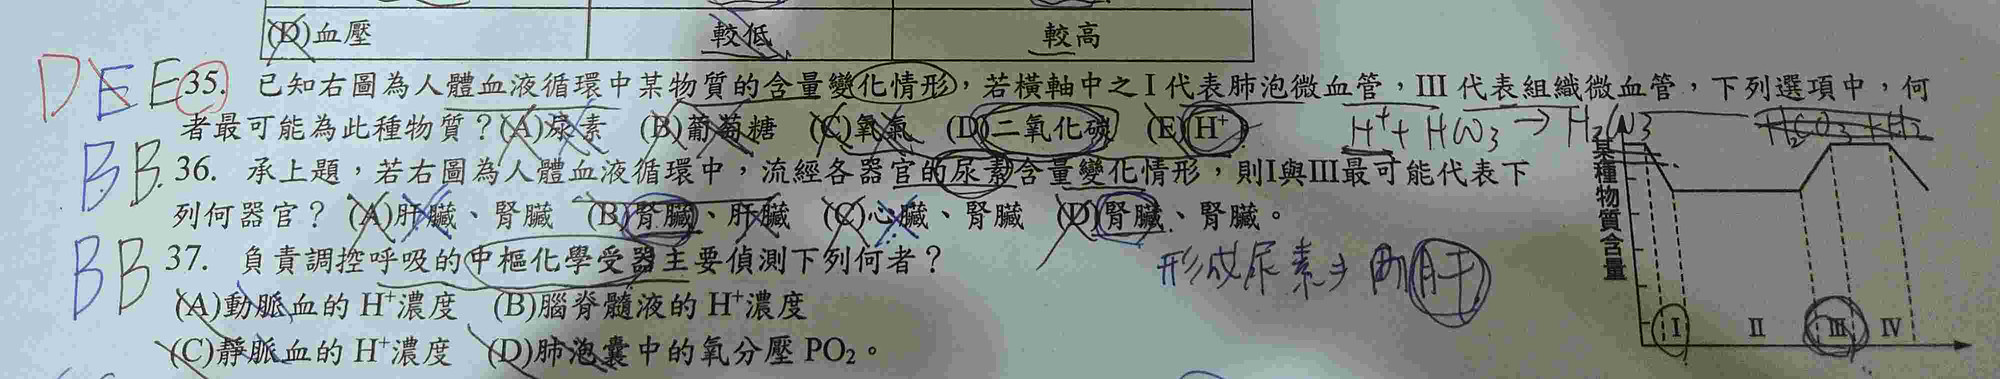 (D)血壓 較低 較高
D E E 35. 已知右圖為人體血液循環中某物質的含量變化情形，若橫軸中之 I 代表肺泡微血管，III 代表組織微血管，下列選項中，何
者最可能為此種物質？(A)尿素 (B)葡萄糖 (C)氧氣 (D)二氧化碳 (E)H⁺
B B 36. 承上題，若右圖為人體血液循環中，流經各器官的尿素含量變化情形，則I與III最可能代表下
列何器官？ (A)肝臟、腎臟 (B)腎臟、肝臟 (C)心臟、腎臟 (D)腎臟、腎臟。
B B 37. 負責調控呼吸的中樞化學受器主要偵測下列何者？
(A)動脈血的 H⁺濃度 (B)腦脊髓液的 H⁺濃度
(C)靜脈血的 H⁺濃度 (D)肺泡囊中的氧分壓 PO₂。
形成尿素 肝
某種物質含量
I II III IV